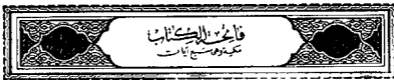 فاتحة الكتاب
مكية وهي سبع آيات